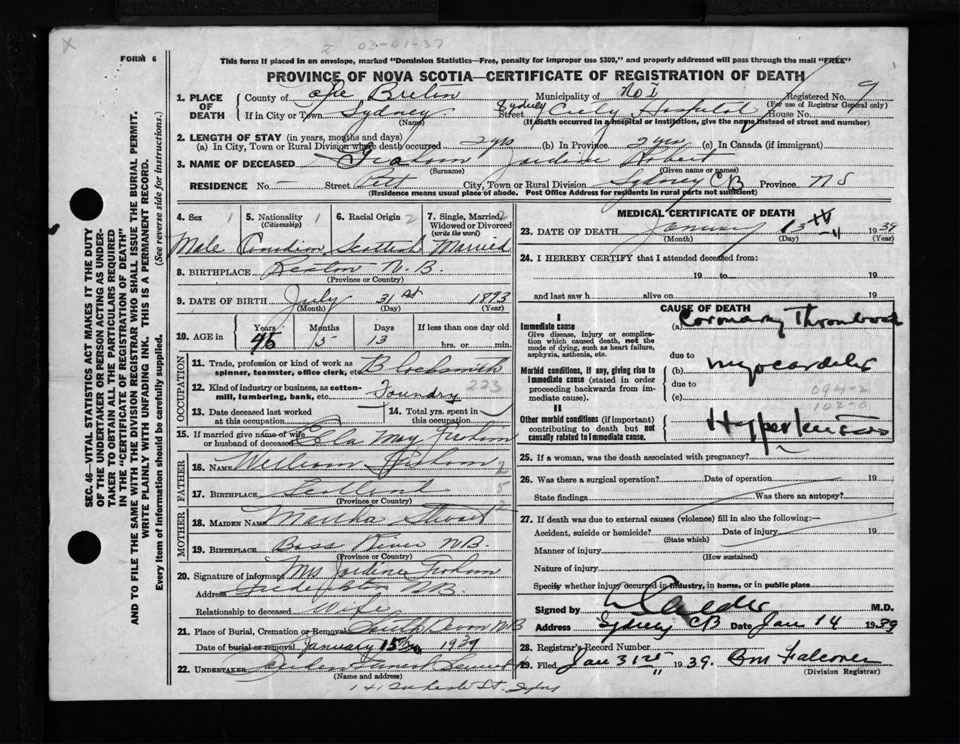 2 03-01-37
X
FORM 6
This form if placed in an envelope, marked "Dominion Statistics—Free, penalty for improper use $300," and properly addressed will pass through the mail "FREE"
PROVINCE OF NOVA SCOTIA—CERTIFICATE OF REGISTRATION OF DEATH
1. PLACE OF DEATH
County of Cape Breton Municipality of No 1 Registered No. 9
(For use of Registrar General only)
If in City or Town Sydney Street Sydney City Hospital House No.
(Name) (If death occurred in a hospital or institution, give the name instead of street and number)
2. LENGTH OF STAY (in years, months and days)
(a) In City, Town or Rural Division where death occurred 2 yrs (b) In Province 2 yrs (c) In Canada (if immigrant)
3. NAME OF DECEASED Graham Jardine Robert
(Surname) (Given name or names)
RESIDENCE No. Street Pitt City, Town or Rural Division Sydney CB Province N S
(Residence means usual place of abode. Post Office Address for residents in rural parts not sufficient)
4. Sex 1
Male
5. Nationality 1
(Citizenship)
Canadian
6. Racial Origin 2
Scottish
7. Single, Married, Widowed or Divorced 2
(write the word)
Married
8. BIRTHPLACE N.B.
(Province or Country)
9. DATE OF BIRTH July 31st 1893
(Month) (Day) (Year)
10. AGE in
Years 45
Months 5
Days 13
If less than one day old
hrs. or min.
OCCUPATION
11. Trade, profession or kind of work as spinner, teamster, office clerk, etc. Blacksmith
12. Kind of industry or business, as cotton-mill, lumbering, bank, etc. Foundry 223
13. Date deceased last worked at this occupation
14. Total yrs. spent in this occupation
15. If married give name of wife or husband of deceased Ella May Graham
FATHER
16. NAME William Graham
17. BIRTHPLACE Scotland 5
(Province or Country)
MOTHER
18. MAIDEN NAME Martha Stuart 2
19. BIRTHPLACE Bass River N.B.
(Province or Country)
20. Signature of informant Mrs Jardine Graham
Address Fredericton N.B.
Relationship to deceased Wife
21. Place of Burial, Cremation or Removal N B
Date of burial or removal January 15 1939
22. UNDERTAKER
(Name and address)
141 St. Sydney
MEDICAL CERTIFICATE OF DEATH
23. DATE OF DEATH January 13 1939
(Month) (Day) (Year)
24. I HEREBY CERTIFY that I attended deceased from:
19 to 19
and last saw h alive on 19
CAUSE OF DEATH
I
Immediate cause
Give disease, injury or complication which caused death, not the mode of dying, such as heart failure, asphyxia, asthenia, etc.
(a) Coronary Thrombosis
due to
Morbid conditions, if any, giving rise to immediate cause (stated in order proceeding backwards from immediate cause).
(b) myocarditis
due to
(c)
094-2
102-0
II
Other morbid conditions (if important) contributing to death but not causally related to immediate cause.
Hypertension
25. If a woman, was the death associated with pregnancy?
26. Was there a surgical operation? Date of operation 19
State findings Was there an autopsy?
27. If death was due to external causes (violence) fill in also the following:—
Accident, suicide or homicide? Date of injury 19
(State which)
Manner of injury
(How sustained)
Nature of injury
Specify whether injury occurred in industry, in home, or in public place
Signed by M.D.
Address Sydney CB Date Jan 14 1939
28. Registrar's Record Number
29. Filed Jan 31st 1939. Falconer
(Division Registrar)
SEC. 46—VITAL STATISTICS ACT MAKES IT THE DUTY
OF THE UNDERTAKER OR PERSON ACTING AS UNDER-
TAKER TO OBTAIN ALL THE PARTICULARS REQUIRED
IN THE "CERTIFICATE OF REGISTRATION OF DEATH"
AND TO FILE THE SAME WITH THE DIVISION REGISTRAR WHO SHALL ISSUE THE BURIAL PERMIT.
WRITE PLAINLY WITH UNFADING INK. THIS IS A PERMANENT RECORD.
Every item of information should be carefully supplied. (See reverse side for instructions.)